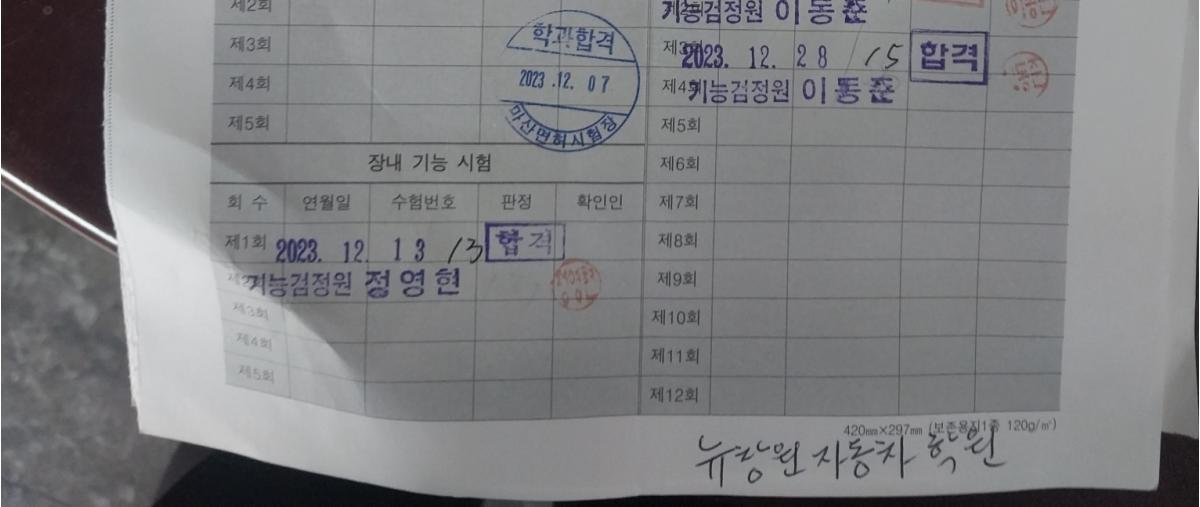 제2회
제3회
제4회
제5회
학과합격
2023.12.07
마산면허시험장
장내 기능 시험
회 수 연월일 수험번호 판정 확인인
제1회 2023. 12. 13 13 합격
제2회
기능검정원 정영현
제3회
제4회
제5회
기능검정원 이동준
제3회 2023. 12. 28 15 합격
제4회
기능검정원 이동준
제5회
제6회
제7회
제8회
제9회
제10회
제11회
제12회
420㎜×297㎜ (보존용지1종 120g/㎡)
뉴창원 자동차 학원